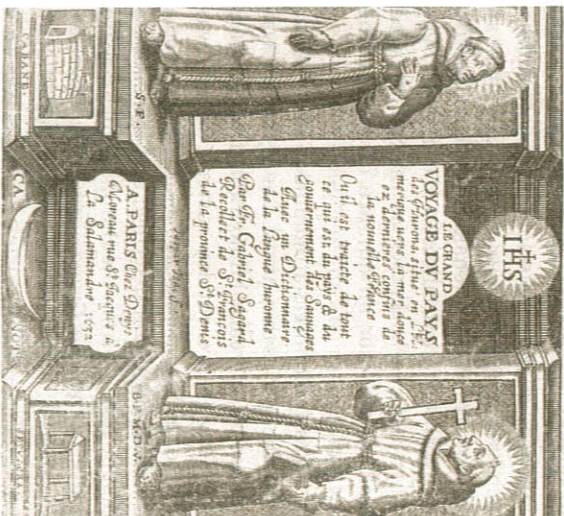 IHS
LE GRAND
VOYAGE DV PAYS
des Hurons situe en l'A
merique uers la mer douce
ez derniers confins de
la nouuelle France
Ou il est traicte de tout
ce qui est du pays & du
gouuernement des Sauuages
Auec un Dictionnaire
de la langue huronne
Par Fr. Gabriel Sagard
Recollect de St. François
de la prouince St. Denis
S. F.
B. P. M. D. V.
A PARIS Chez Denys
Moreau rue St. Jacques a
La Salamandre 1632
CABANE.
CA
NOT